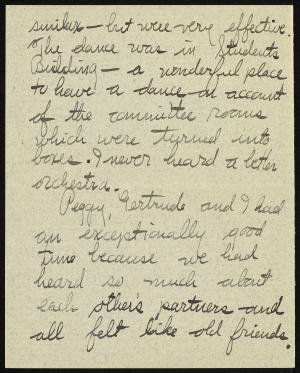 similar - but were very effective.
The dance was in Students
Building - a wonderful place
to have a dance on account
of the committee rooms
which were turned into
boxes. I never heard a better
orchestra.
Peggy, Gertrude and I had
an exceptionally good
time because we had
heard so much about
each other's partners and
all felt like old friends.